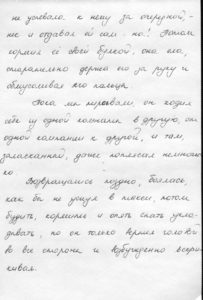 не успевало. к нему за очередной, -
нес и отдавал ей сам. но! Потом
кормил её Лёсей булкой, она ела,
старательно держа его за руку и
обмусоливая его пальцы.
Пока мы пировали, он ходил
себе из одной компании в другую, от
одной компании к другой, и там,
заласканный, даже поплясал немножко
Возвращались поздно, боялась,
как бы не уснул в пикапе, потом
будить, кормить и опять спать укла-
дывать, но он только вертел головой
во все стороны и возбуждённо вскри-
кивал.